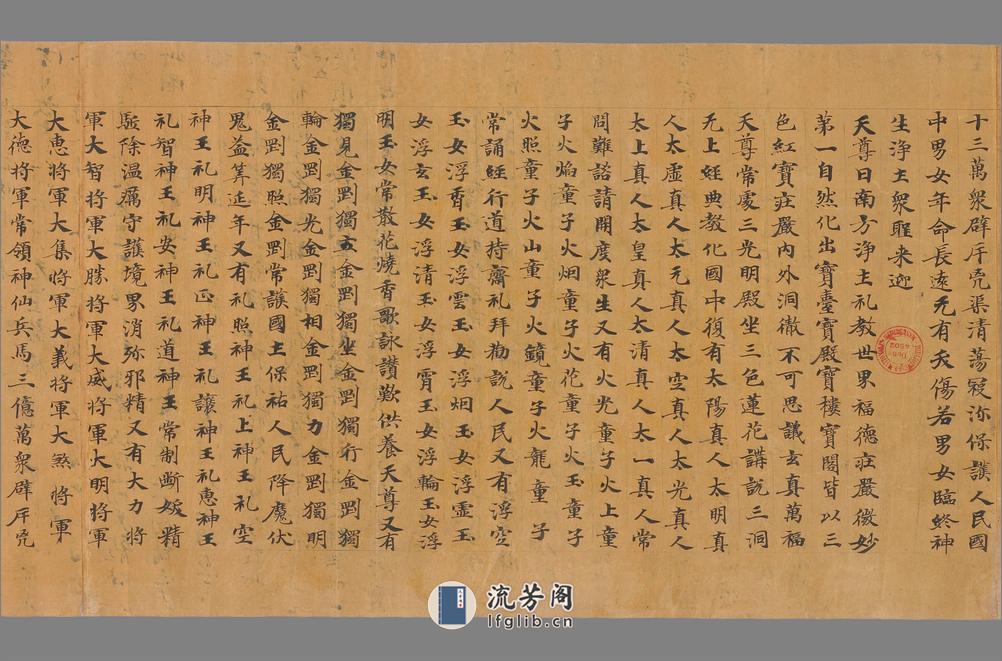 十三萬衆辟斥兇渠清蕩寇弥保護人民國
中男女年命長遠无有夭傷若男女臨終神
生浄土衆聖来迎
天尊曰南方浄土礼教世界福德莊嚴微妙
第一自然化出寶臺寶殿寶樓寶閣皆以三
色紅寶莊嚴內外洞徹不可思議玄真萬福
天尊常處三光明殿坐三色蓮花講說三洞
无上經典教化國中復有太陽真人太明真
人太虛真人太元真人太空真人太光真人
太上真人太皇真人太清真人太一真人常
問難諮請開度衆生又有火光童子火上童
子火焰童子火烟童子火花童子火玉童子
火照童子火山童子火鏡童子火龍童子
常誦經行道持齋礼拜勸說人民又有浮空
玉女浮香玉女浮雲玉女浮烟玉女浮霊玉
女浮玄玉女浮清玉女浮霄玉女浮輪玉女浮
明玉女常散花燒香歌詠讃歎供養天尊又有
獨見金罡獨玄金罡獨坐金罡獨行金罡獨
輪金罡獨光金罡獨相金罡獨力金罡獨明
金罡獨照金罡常護國土保祐人民降魔伏
鬼益筭延年又有礼照神王礼上神王礼空
神王礼明神王礼正神王礼讓神王礼惠神王
礼智神王礼安神王礼道神王常制斷妖精
駈除温厲守護境界消弥邪精又有大力將
軍大智將軍大勝將軍大威將軍大明將軍
大惠將軍大集將軍大義將軍大煞將軍
大德將軍常領神仙兵馬三億萬衆辟斥兇
流芳阁
lfglib.cn